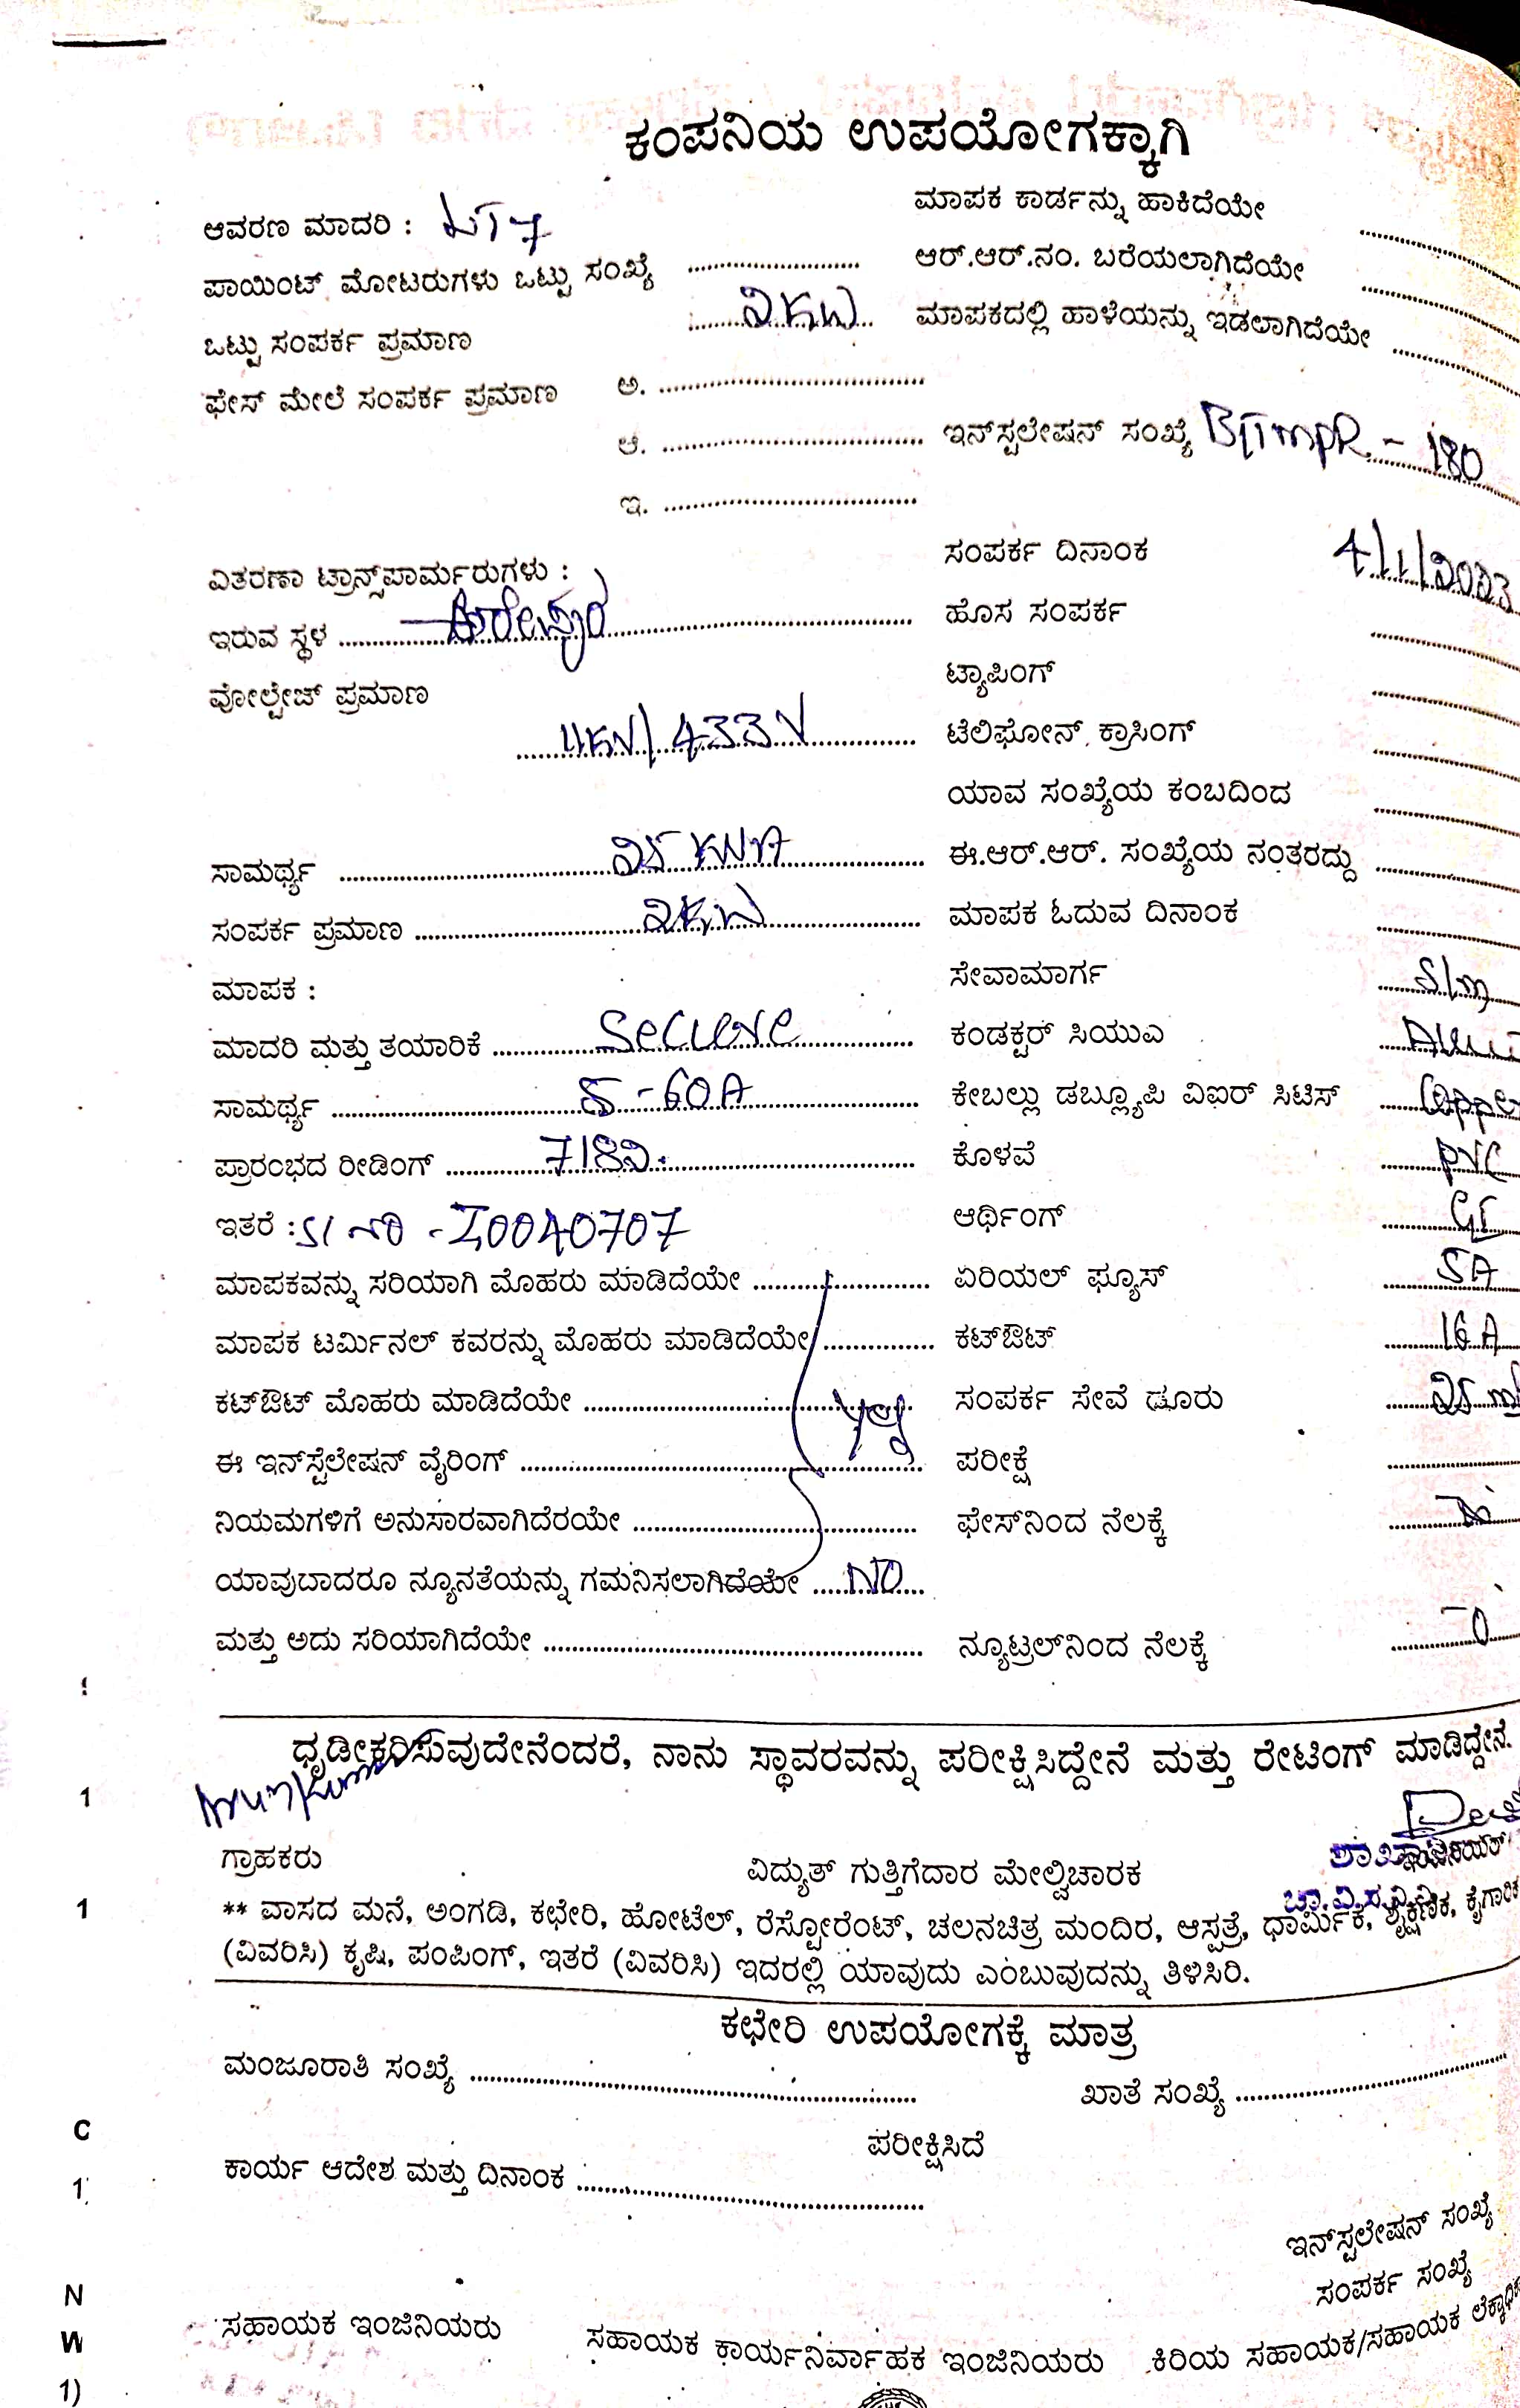 ಕಂಪನಿಯ ಉಪಯೋಗಕ್ಕಾಗಿ
ಆವರಣ ಮಾದರಿ : LT7
ಮಾಪಕ ಕಾರ್ಡನ್ನು ಹಾಕಿದೆಯೇ ..........
ಪಾಯಿಂಟ್ ಮೋಟರುಗಳು ಒಟ್ಟು ಸಂಖ್ಯೆ ..........
ಆರ್.ಆರ್.ನಂ. ಬರೆಯಲಾಗಿದೆಯೇ ..........
ಒಟ್ಟು ಸಂಪರ್ಕ ಪ್ರಮಾಣ 2KW
ಮಾಪಕದಲ್ಲಿ ಹಾಳೆಯನ್ನು ಇಡಲಾಗಿದೆಯೇ ..........
ಫೇಸ್ ಮೇಲೆ ಸಂಪರ್ಕ ಪ್ರಮಾಣ ಅ. ..........
ಆ. ..........
ಇನ್‌ಸ್ಟಲೇಷನ್ ಸಂಖ್ಯೆ BTTMPR - 180
ಇ. ..........
ವಿತರಣಾ ಟ್ರಾನ್ಸ್‌ಪಾರ್ಮರುಗಳು :
ಸಂಪರ್ಕ ದಿನಾಂಕ 4/1/2023
ಇರುವ ಸ್ಥಳ ..........
ಹೊಸ ಸಂಪರ್ಕ ..........
ವೋಲ್ಟೇಜ್ ಪ್ರಮಾಣ 11KV/433V
ಟ್ಯಾಪಿಂಗ್ ..........
ಟೆಲಿಫೋನ್ ಕ್ರಾಸಿಂಗ್ ..........
ಯಾವ ಸಂಖ್ಯೆಯ ಕಂಬದಿಂದ ..........
ಸಾಮರ್ಥ್ಯ 25 KVA
ಈ.ಆರ್.ಆರ್. ಸಂಖ್ಯೆಯ ನಂತರದ್ದು ..........
ಸಂಪರ್ಕ ಪ್ರಮಾಣ 2KW
ಮಾಪಕ ಓದುವ ದಿನಾಂಕ ..........
ಮಾಪಕ :
ಸೇವಾಮಾರ್ಗ S/m
ಮಾದರಿ ಮತ್ತು ತಯಾರಿಕೆ Secure
ಕಂಡಕ್ಟರ್ ಸಿಯುಎ
ಸಾಮರ್ಥ್ಯ 5-60A
ಕೇಬಲ್ಲು ಡಬ್ಲ್ಯೂಪಿ ವಿಐರ್ ಸಿಟಿಸ್ Coppe
ಪ್ರಾರಂಭದ ರೀಡಿಂಗ್ 7182.
ಕೊಳವೆ PVC
ಇತರೆ : Sl no - I0040707
ಆರ್ಥಿಂಗ್ GI
ಮಾಪಕವನ್ನು ಸರಿಯಾಗಿ ಮೊಹರು ಮಾಡಿದೆಯೇ ..........
ಏರಿಯಲ್ ಫ್ಯೂಸ್ 5A
ಮಾಪಕ ಟರ್ಮಿನಲ್ ಕವರನ್ನು ಮೊಹರು ಮಾಡಿದೆಯೇ ..........
ಕಟ್‌ಔಟ್ 16A
ಕಟ್‌ಔಟ್ ಮೊಹರು ಮಾಡಿದೆಯೇ .......... Yes
ಸಂಪರ್ಕ ಸೇವೆ ದೂರು 25 m
ಈ ಇನ್‌ಸ್ಟೆಲೇಷನ್ ವೈರಿಂಗ್ ..........
ಪರೀಕ್ಷೆ ..........
ನಿಯಮಗಳಿಗೆ ಅನುಸಾರವಾಗಿದೆರಯೇ ..........
ಫೇಸ್‌ನಿಂದ ನೆಲಕ್ಕೆ
ಯಾವುಬಾದರೂ ನ್ಯೂನತೆಯನ್ನು ಗಮನಿಸಲಾಗಿದೆಯೇ NO
ಮತ್ತು ಅದು ಸರಿಯಾಗಿದೆಯೇ ..........
ನ್ಯೂಟ್ರಲ್‌ನಿಂದ ನೆಲಕ್ಕೆ
ಧೃಡೀಕರಿಸುವುದೇನೆಂದರೆ, ನಾನು ಸ್ಥಾವರವನ್ನು ಪರೀಕ್ಷಿಸಿದ್ದೇನೆ ಮತ್ತು ರೇಟಿಂಗ್ ಮಾಡಿದ್ದೇನೆ.
ಗ್ರಾಹಕರು
ವಿದ್ಯುತ್ ಗುತ್ತಿಗೆದಾರ ಮೇಲ್ವಿಚಾರಕ
** ವಾಸದ ಮನೆ, ಅಂಗಡಿ, ಕಛೇರಿ, ಹೋಟೆಲ್, ರೆಸ್ಟೋರೆಂಟ್, ಚಲನಚಿತ್ರ ಮಂದಿರ, ಆಸ್ಪತ್ರೆ, ಧಾರ್ಮಿಕ, ಶೈಕ್ಷಣಿಕ, ಕೈಗಾರಿಕ
(ವಿವರಿಸಿ) ಕೃಷಿ, ಪಂಪಿಂಗ್, ಇತರೆ (ವಿವರಿಸಿ) ಇದರಲ್ಲಿ ಯಾವುದು ಎಂಬುವುದನ್ನು ತಿಳಿಸಿರಿ.
ಕಛೇರಿ ಉಪಯೋಗಕ್ಕೆ ಮಾತ್ರ
ಮಂಜೂರಾತಿ ಸಂಖ್ಯೆ ..........
ಖಾತೆ ಸಂಖ್ಯೆ ..........
ಪರೀಕ್ಷಿಸಿದೆ
ಕಾರ್ಯ ಆದೇಶ ಮತ್ತು ದಿನಾಂಕ ..........
ಇನ್‌ಸ್ಟಲೇಷನ್ ಸಂಖ್ಯೆ
ಸಂಪರ್ಕ ಸಂಖ್ಯೆ
ಸಹಾಯಕ ಇಂಜಿನಿಯರು
ಸಹಾಯಕ ಕಾರ್ಯನಿರ್ವಾಹಕ ಇಂಜಿನಿಯರು
ಕಿರಿಯ ಸಹಾಯಕ/ಸಹಾಯಕ